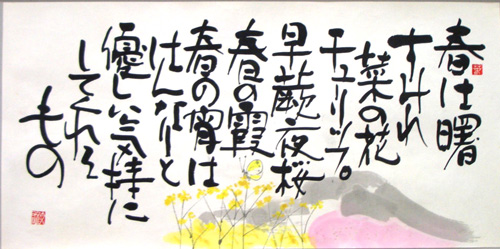 春は曙
すみれ
菜の花
チューリップ。
早蕨夜桜
春の霞
春の宵は
はんなりと
優しい気持に
してくれる
もの